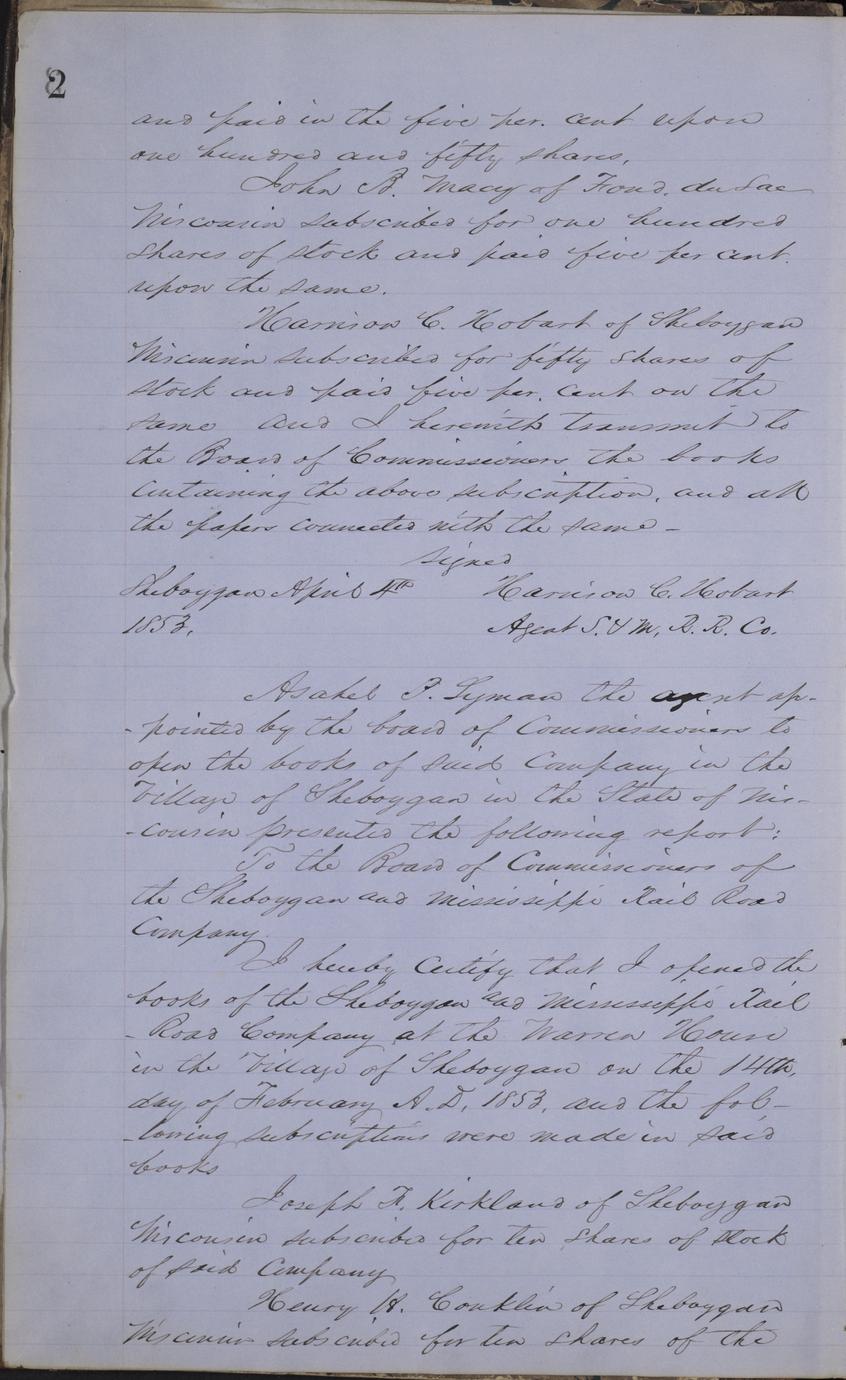 2
and paid in the five per. cent upon
one hundred and fifty shares.
John B. Macy of Fond. du Lac
Wisconsin subscribed for one hundred
shares of stock and paid five per cent.
upon the same.
Harrison C. Hobart of Sheboygan
Wisconsin subscribed for fifty shares of
stock and paid five per. cent on the
same and I herewith transmit to
the Board of Commissioners the books
containing the above subscription, and all
the papers connected with the same -
signed
Sheboygan April 4th Harrison C. Hobart
1853. Agent S. & M. R. R. Co.
Asahel P. Lyman the agent ap-
- pointed by the board of Commissioners to
open the books of said Company in the
Village of Sheboygan in the State of Wis-
- consin presented the following report:
To the Board of Commissioners of
the Sheboygan and Mississippi Rail Road
Company.
I hereby certify that I opened the
books of the Sheboygan and Mississippi Rail
- Road Company at the Warren House
in the Village of Sheboygan on the 14th,
day of February A.D. 1853, and the fol-
- lowing subscriptions were made in said
books
Joseph F. Kirkland of Sheboygan
Wisconsin subscribed for ten shares of stock
of said Company
Henry H. Conklin of Sheboygan
Wisconsin subscribed for ten shares of the